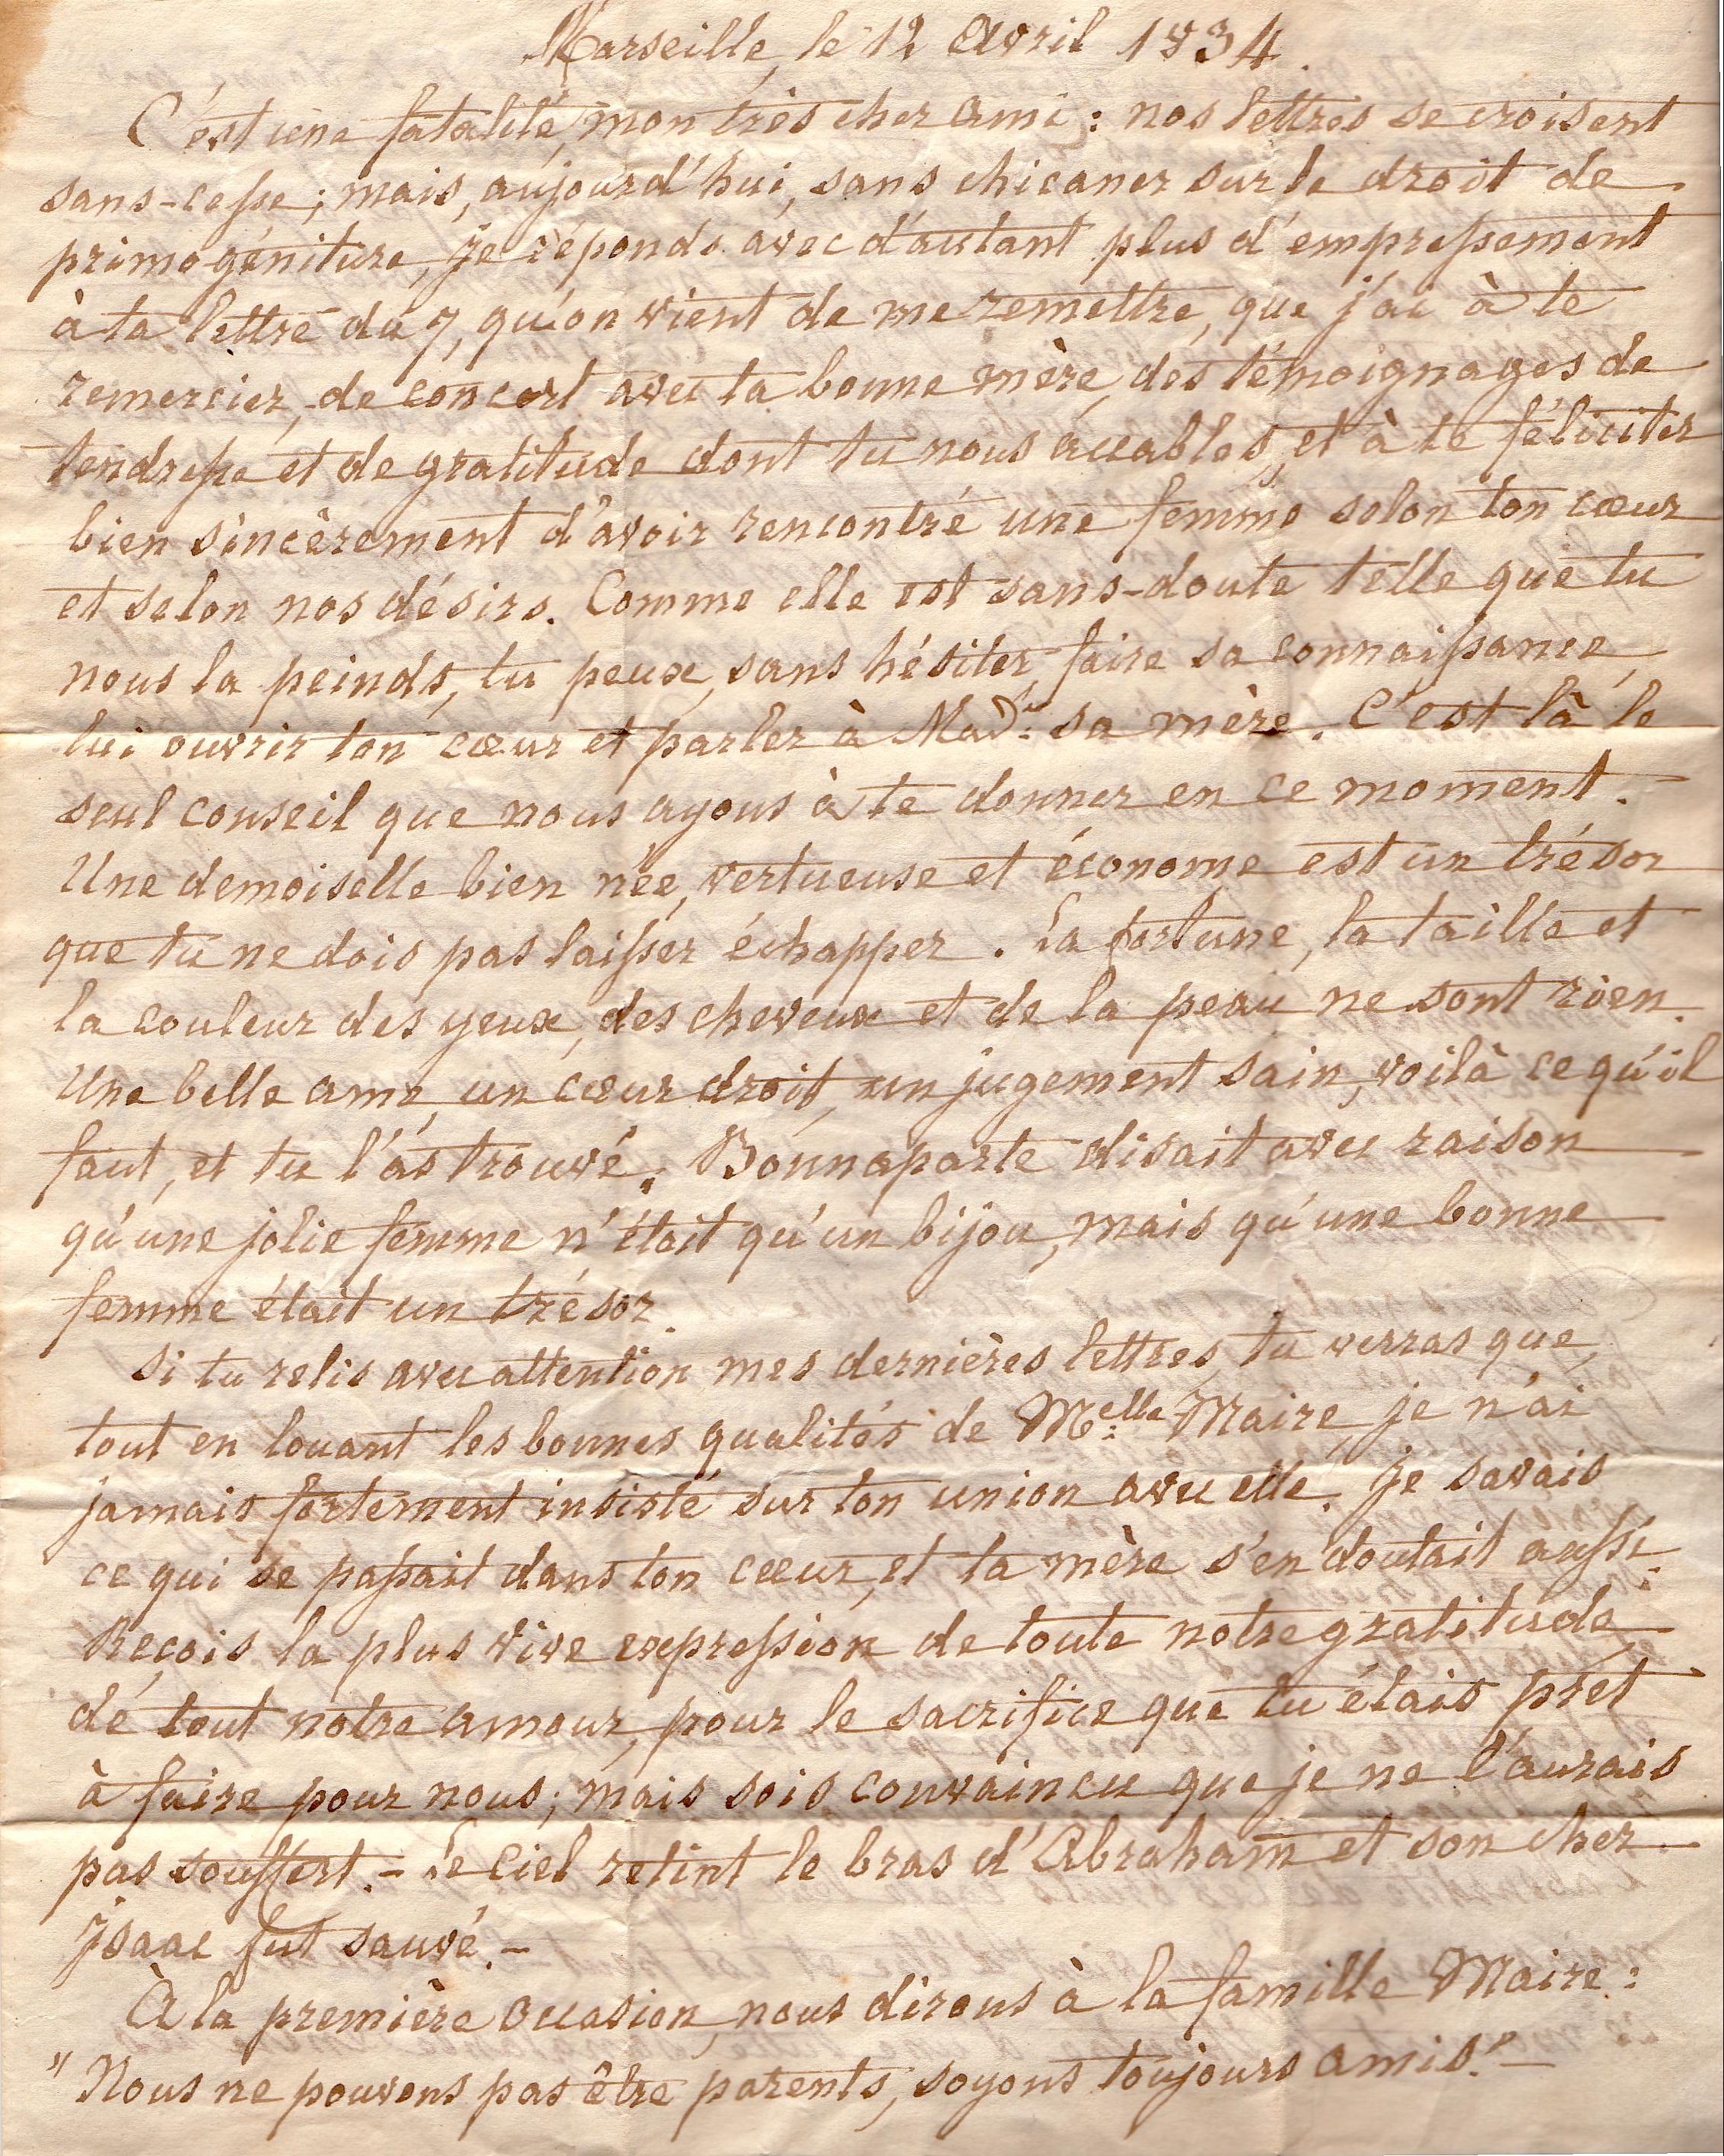 Marseille, le 12 Avril 1834.
C'est une fatalité, mon très cher ami : nos lettres se croisent
sans-cesse ; mais, aujourd'hui, sans chicaner sur le droit de
primogéniture, je réponds avec d'autant plus d'empressement
à ta lettre du 7, qu'on vient de me remettre, que j'ai à te
remercier, de concert avec ta bonne mère, des témoignages de
tendresse et de gratitude dont tu nous accables, et à te féliciter
bien sincèrement d'avoir rencontré une femme selon ton cœur
et selon nos désirs. Comme elle est sans-doute telle que tu
nous la peinds, tu peux, sans hésiter, faire sa connaissance,
lui ouvrir ton cœur et parler à Made. sa mère. C'est là le
seul conseil que nous ayons à te donner en ce moment.
Une demoiselle bien née, vertueuse et économe est un trésor
que tu ne dois pas laisser échapper. La fortune, la taille et
la couleur des yeux, des cheveux et de la peau ne sont rien.
Une belle ame, un cœur droit, un jugement sain, voilà ce qu'il
faut, et tu l'as trouvé. Bonnaparte disait avec raison
qu'une jolie femme n'était qu'un bijou, mais qu'une bonne
femme était un trésor.
Si tu relis avec attention mes dernières lettres, tu verras que,
tout en louant les bonnes qualités de M.elle Maire, je n'ai
jamais fortement insisté sur ton union avec elle. Je savais
ce qui se passait dans ton cœur, et ta mère s'en doutait aussi.
Reçois la plus vive expression de toute notre gratitude,
de tout notre amour, pour le sacrifice que tu étais prêt
à faire pour nous ; mais sois convaincu que je ne l'aurais
pas souffert. - Le Ciel retint le bras d'Abraham et son cher
Isaac fut sauvé. -
À la première occasion, nous dirons à la famille Maire :
"Nous ne pouvons pas être parents, soyons toujours amis." -